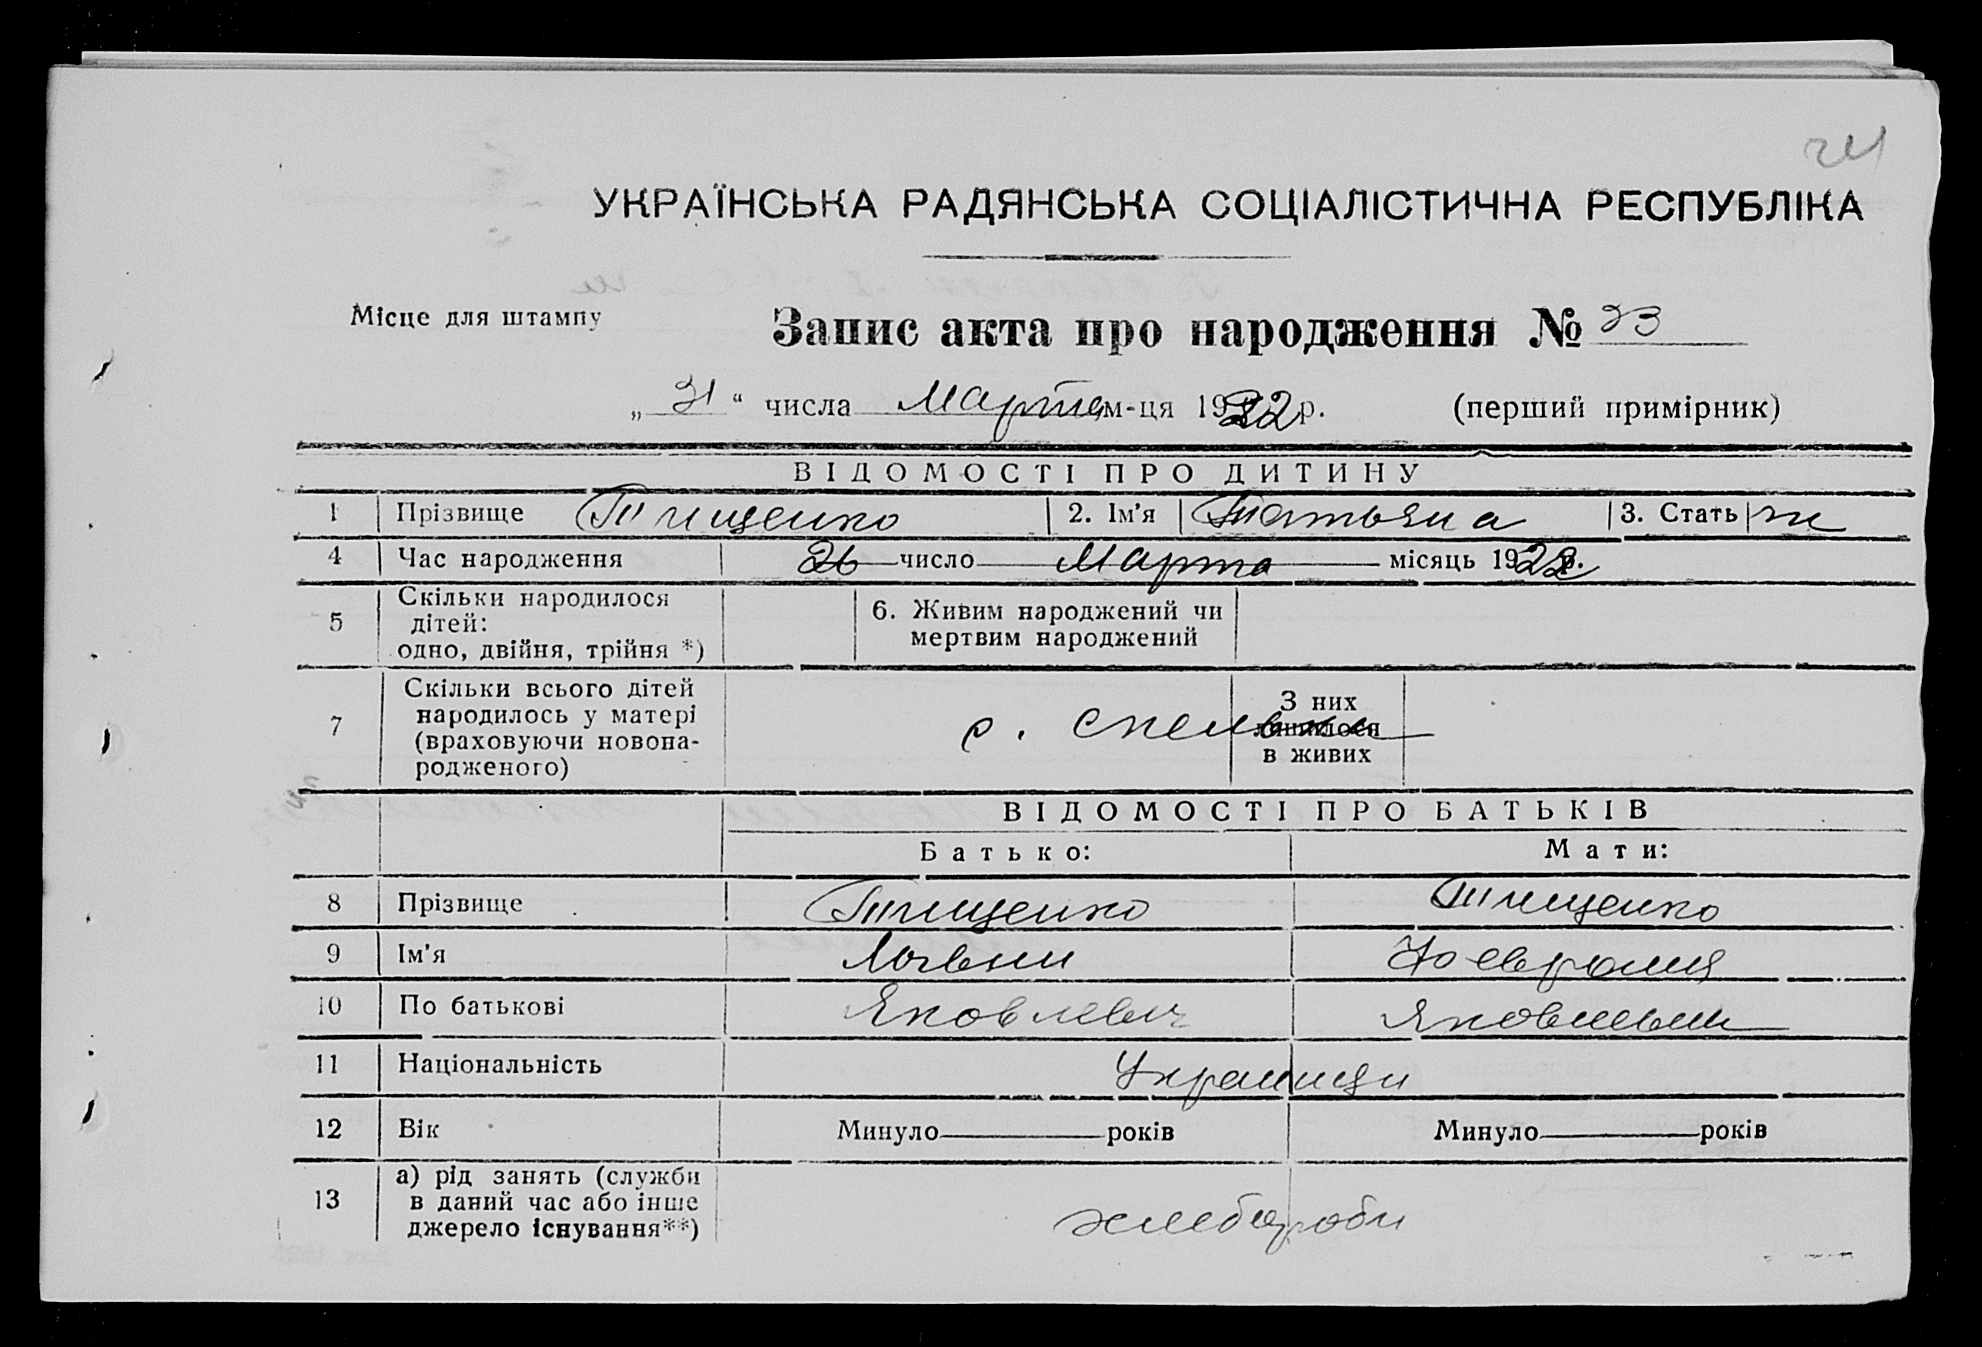 24
УКРАЇНСЬКА РАДЯНСЬКА СОЦІАЛІСТИЧНА РЕСПУБЛІКА
Місце для штампу
Запис акта про народження № 23
„ 31 “ числа Марта м-ця 1922 р. (перший примірник)
ВІДОМОСТІ ПРО ДИТИНУ
1 Прізвище Тищенко 2. Ім'я Татьяна 3. Стать ж
4 Час народження 26 число Марта місяць 1922 р.
5 Скільки народилося дітей: одно, двійня, трійня *) 6. Живим народжений чи мертвим народжений
7 Скільки всього дітей народилось у матері (враховуючи новонародженого) с. З них лишилося в живих
ВІДОМОСТІ ПРО БАТЬКІВ
Батько: Мати:
8 Прізвище Тищенко Тищенко
9 Ім'я
10 По батькові Яковлевич
11 Національність Украинци
12 Вік Минуло років Минуло років
13 а) рід занять (служби в даний час або інше джерело існування**) хлебороби